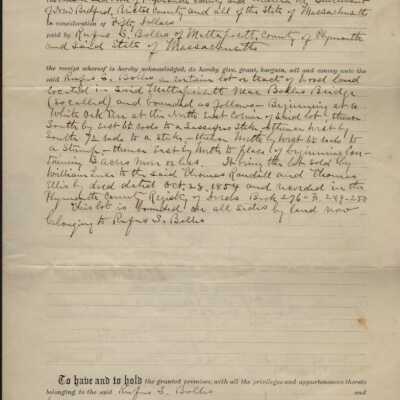 of New Bedford, Bristol County and all of the State of Massachusetts
in consideration of Fifty Dollars
paid by Rufus L. Bolles of Mattapoisett, County of Plymouth
and said State of Massachusetts
the receipt whereof is hereby acknowledged, do hereby give, grant, bargain, sell and convey unto the
said Rufus L. Bolles a certain lot or tract of wood land
located in said Mattapoisett near Bolles Bridge
(so called) and bounded as follows - Beginning at a
White Oak Tree at the North East Corner of said lot - thence
South by East 60 rods to a Sassafras Stake - thence West by
South 72 rods to a stake - thence North by West 60 rods to
a Stump - thence East by North to place of beginning con-
taining 3 acres more or less. It being the lot sold by
William to the said Thomas Randall and Thomas
Ellis by deed dated Oct. 28, 1854 and recorded in the
Plymouth County Registry of Deeds Book 276 - P. 249-250
This lot is bounded on all sides by land now
belonging to Rufus L. Bolles
To have and to hold the granted premises, with all the privileges and appurtenances thereto
belonging to the said Rufus L. Bolles and